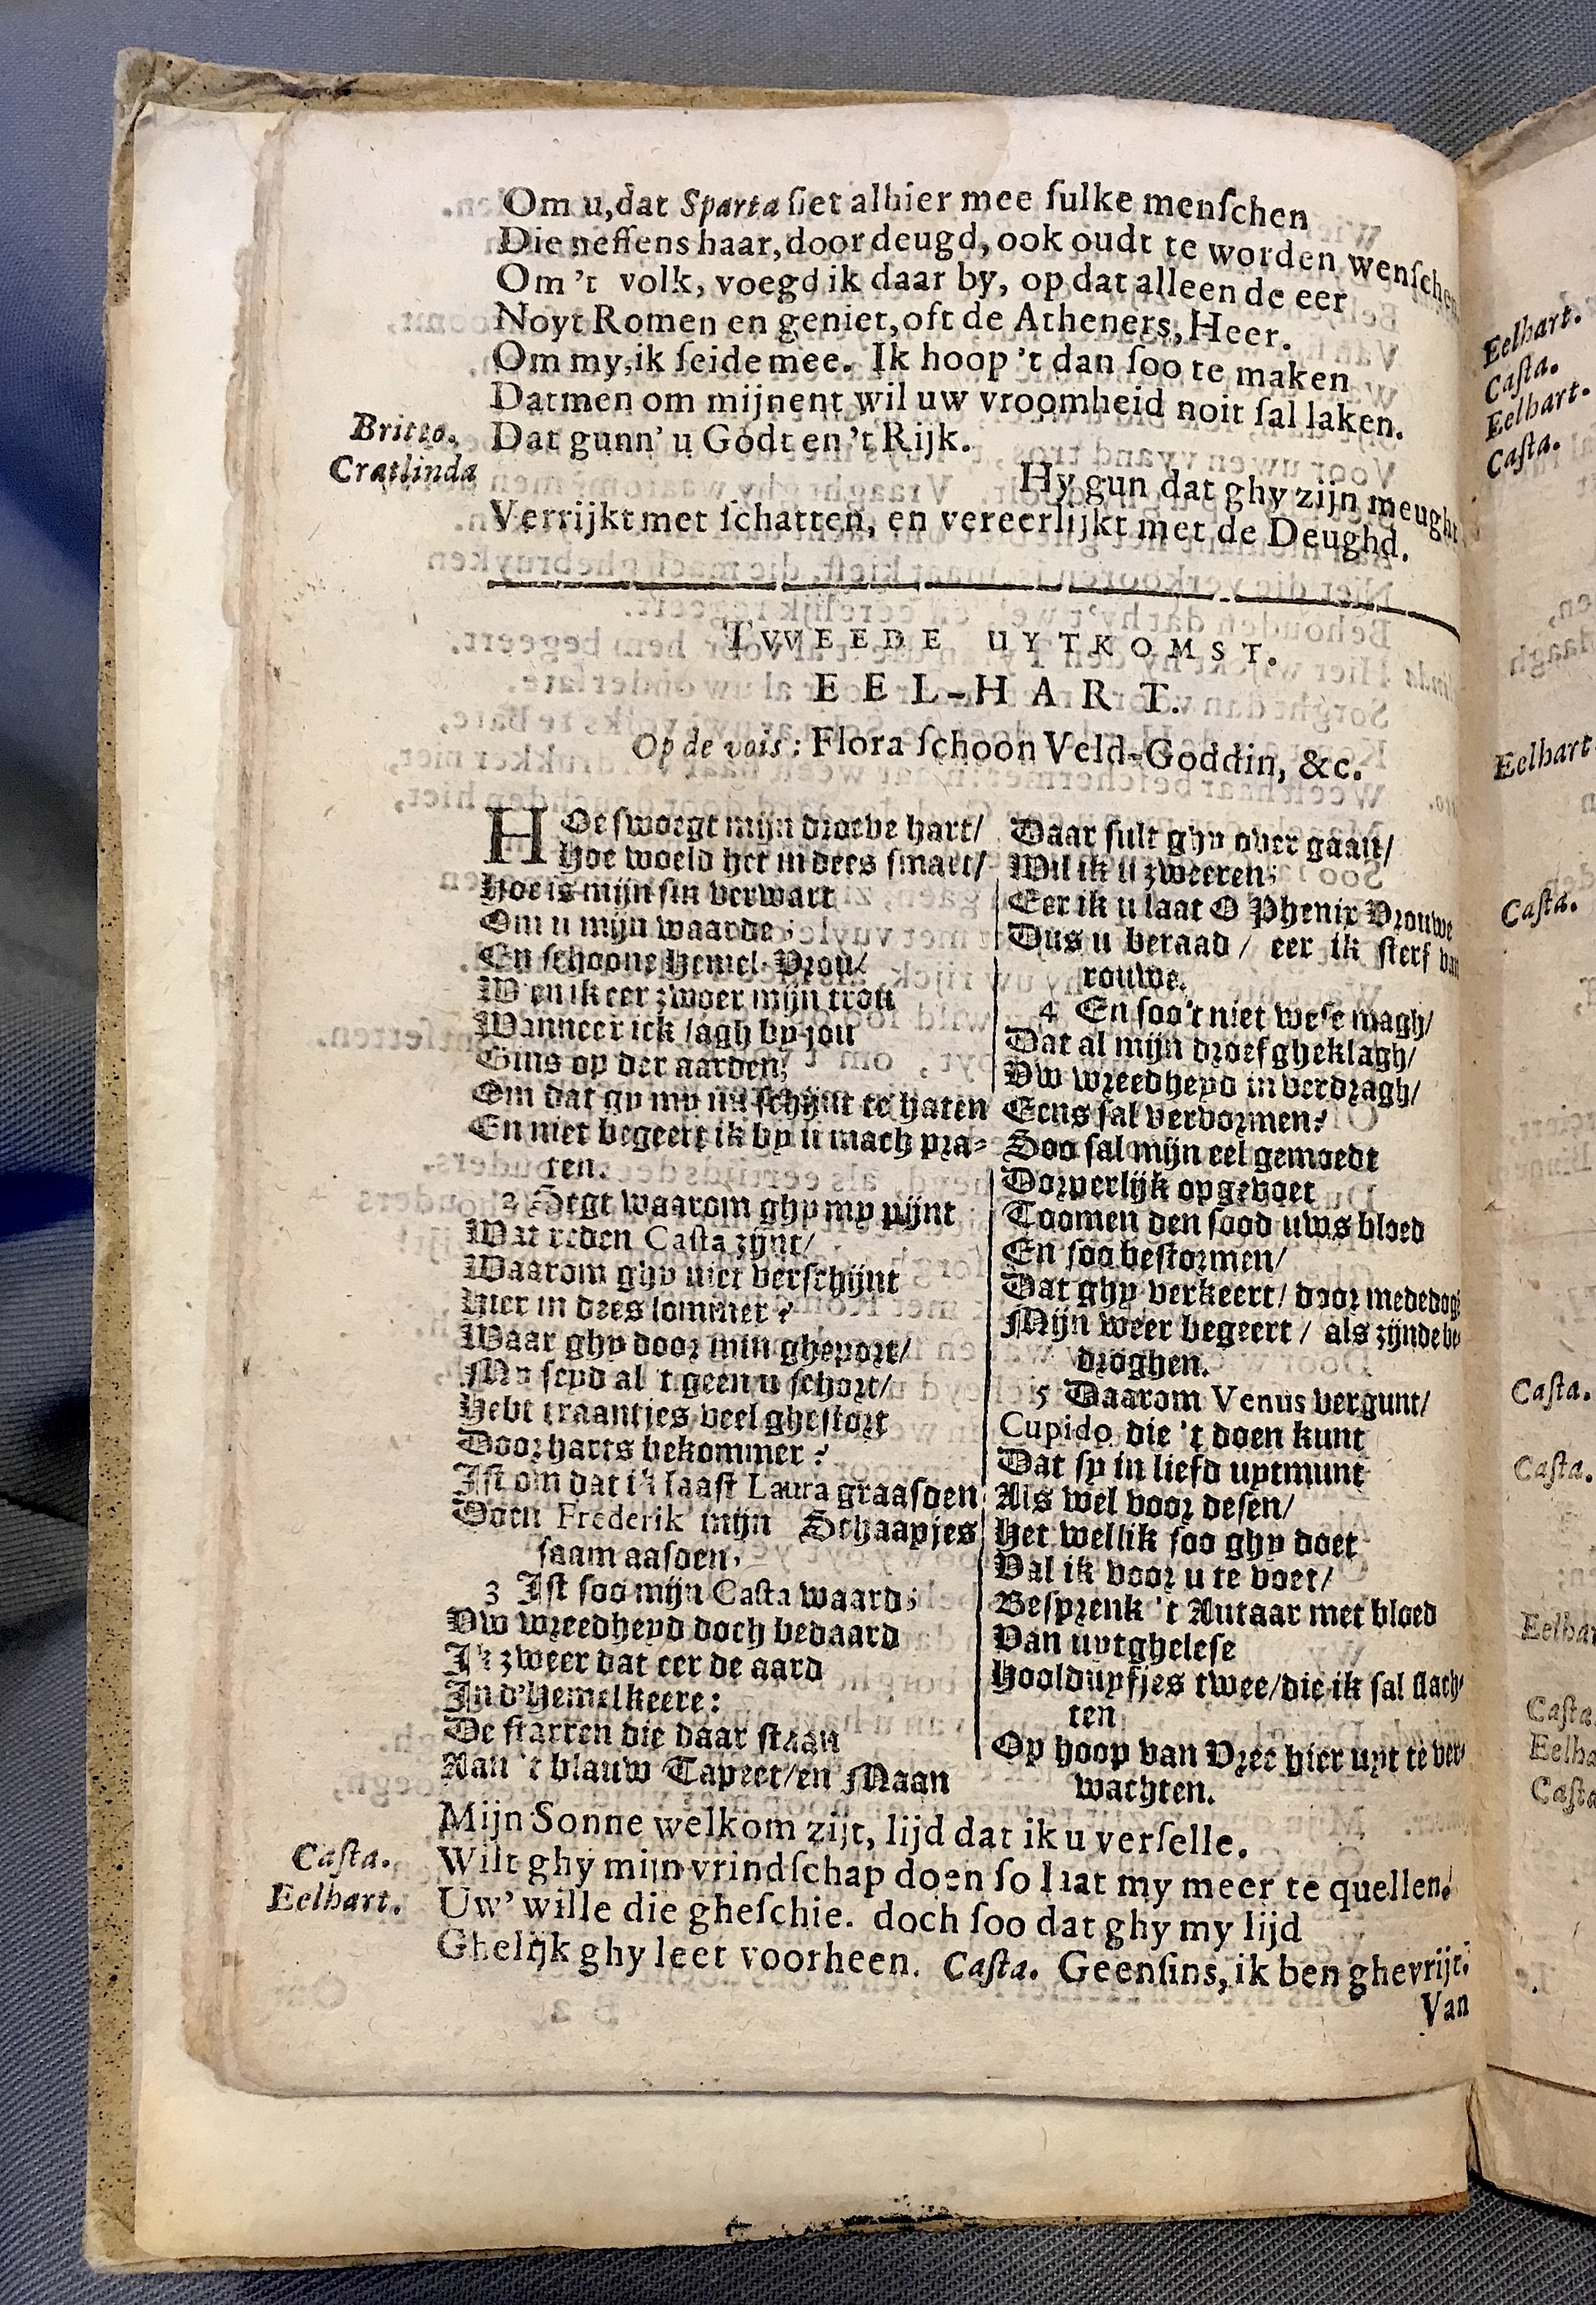 Om u, dat Sparta siet alhier mee sulke menschen
Die neffens haar, door deugd, ook oudt te worden wenschen
Om 't volk, voegd ik daar by, op dat alleen de eer
Noyt Romen en geniet, oft de Atheners, Heer.
Om my, ik seide mee. Ik hoop 't dan soo te maken
Datmen om mijnent wil uw vroomheid noit sal laken.
Britto. Dat gunn' u Godt en 't Rijk.
Cratlinda Hy gun dat ghy zijn meught
Verrijkt met schatten, en vereerlijkt met de Deughd.
TWEEDE UYTKOMST.
EEL-HART.
Op de vois: Flora schoon Veld-Goddin, &c.
HOe swoegt mijn droeve hart/
Hoe woeld het in dees smart/
Hoe is mijn sin verwart
Om u mijn waarde;
En schoone Hemel-Vrou/
Wien ik eer zwoer mijn trou
Wanneer ick lagh by jou
Gins op der aarden;
Om dat gy my nu schijnt te haten
En niet begeert ik by u mach pra-
ten.
2 Segt waarom ghy my pijnt
Wat reden Casta zijnt/
Waarom ghy niet verschijnt
Hier in dees lommer?
Waar ghy door min gheport/
My seyd al 't geen u schort/
Hebt traantjes veel ghestort
Door harts bekommer?
Ist om dat ik laast Laura graasden
Doen Frederik mijn Schaapjes
saam aasden,
3 Ist soo mijn Casta waard;
Uw wreedheyd doch bedaard
Ik zweer dat eer de aard
In d'Hemel keere:
De starren die daar staan
Aan 't blauw Tapeet/en Maan
Daar sult ghy over gaan/
Wil ik u zweeren;
Eer ik u laat O Phenix Vrouwe
Dus u beraad / eer ik sterf van
rouwe.
4 En soo't niet wese magh/
Dat al mijn droef gheklagh/
Uw wreedheyd in verdragh/
Eens sal vervormen?
Soo sal mijn eel gemoedt
Dorperlijk opgevoet
Toomen den sood uws bloed
En soo bestormen/
Dat ghy verkeert/ door mededog
Mijn weer begeert / als zijnde be-
droghen.
5 Daarom Venus vergunt/
Cupido die 't doen kunt
Dat sy in liefd uytmunt
Als wel voor desen/
Het wellik soo ghy doet
Val ik voor u te voet/
Besprenk 't Autaar met bloed
Van uytghelese
Hoolduyfjes twee/die ik sal slach-
ten
Op hoop van Vree hier uyt te ver-
wachten.
Mijn Sonne welkom zijt, lijd dat ik u verselle.
Casta. Wilt ghy mijn vrindschap doen so laat my meer te quellen.
Eelhart. Uw' wille die gheschie. doch soo dat ghy my lijd
Ghelijk ghy leet voorheen. Casta. Geensins, ik ben ghevrijt.
Van
Eelhart.
Casta.
Eelhart.
Casta.
Eelhart
Casta.
Casta.
Casta.
Eelhar
Casta
Eelha
Casta